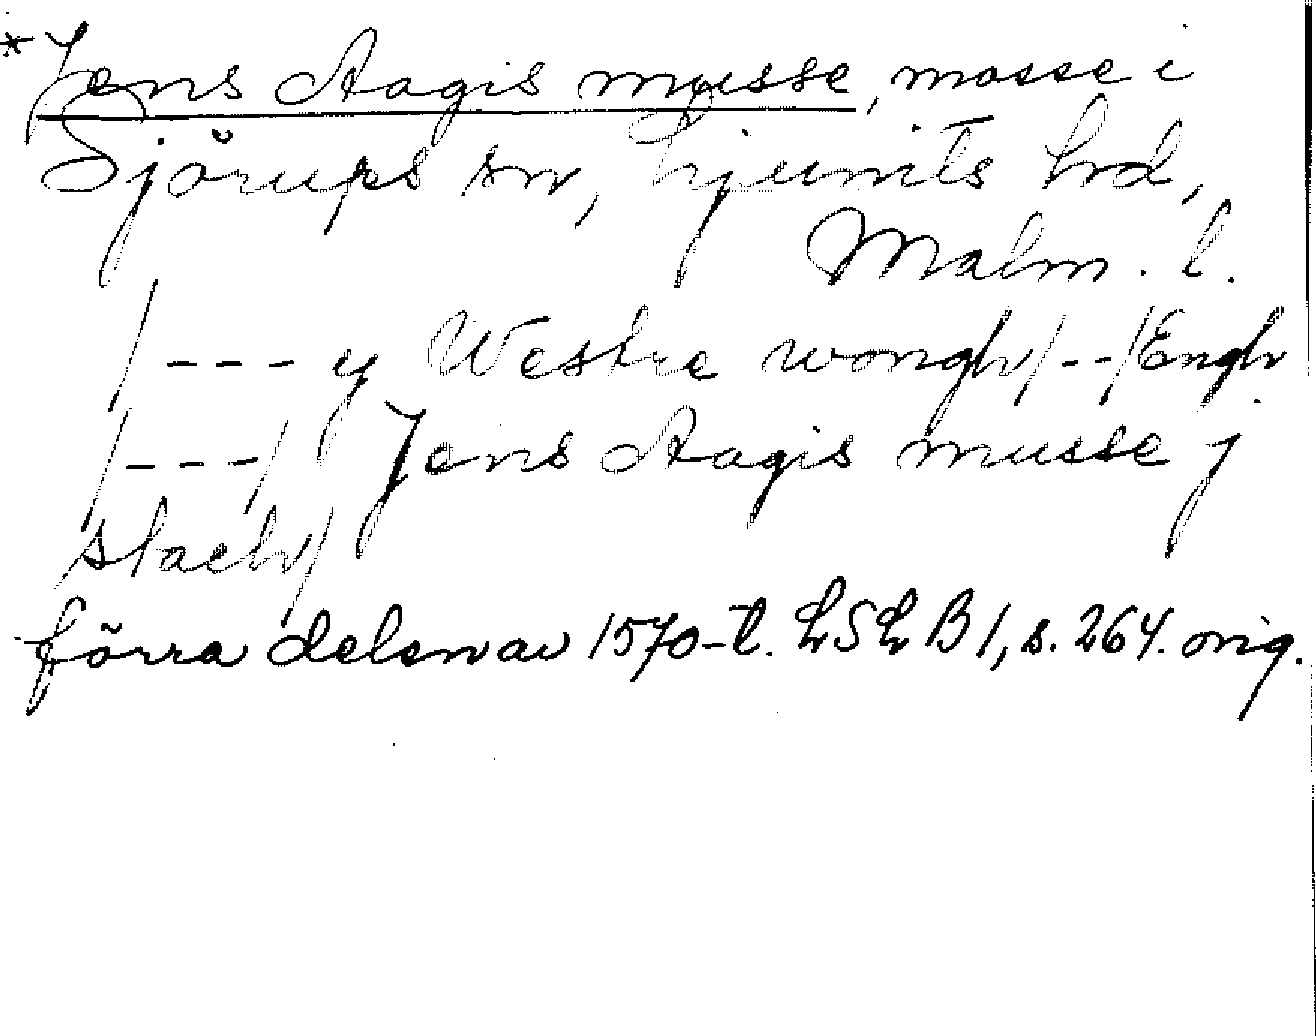 *Jens Aagis musse, mosse i
Sjörups sn, Ljunits hrd,
Malm. l.
/ --- y Westre wongh/--/Engh
/---/ Jens Aagis musse j
stæch/
förra delen av 1570-t. LSL B1, s. 264. orig.